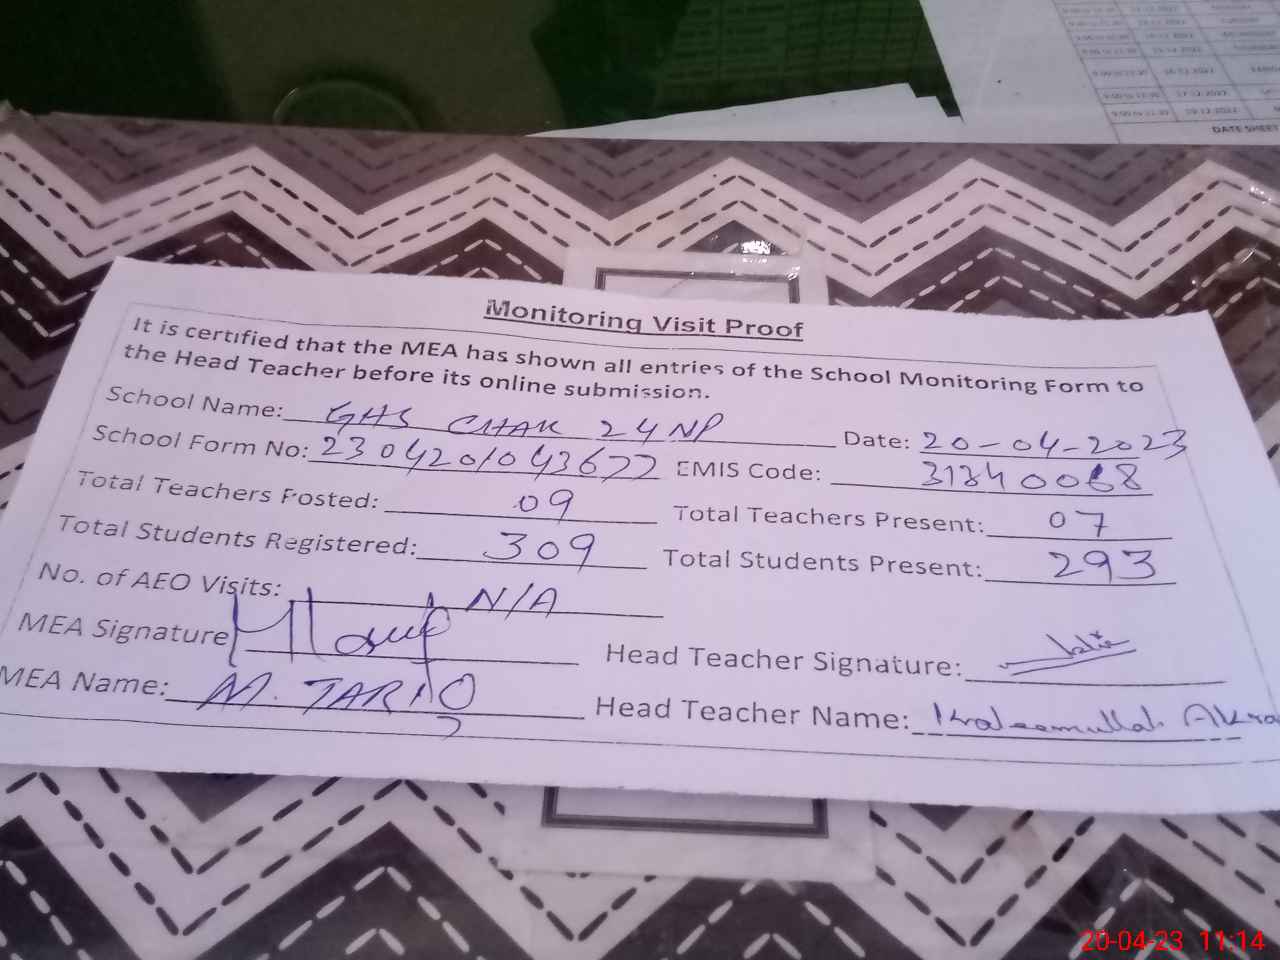 DATE SHEET
Monitoring Visit Proof
It is certified that the MEA has shown all entries of the School Monitoring Form to
the Head Teacher before its online submission.
School Name: GHS CHAK 24 NP Date: 20-04-2023
School Form No: 2304201043677 EMIS Code: 31340068
Total Teachers Posted: 09 Total Teachers Present: 07
Total Students Registered: 309 Total Students Present: 293
No. of AEO Visits: N/A
MEA Signature Head Teacher Signature:
MEA Name: M. TARIQ Head Teacher Name: Kaleemullah Akra
20-04-23 11:14